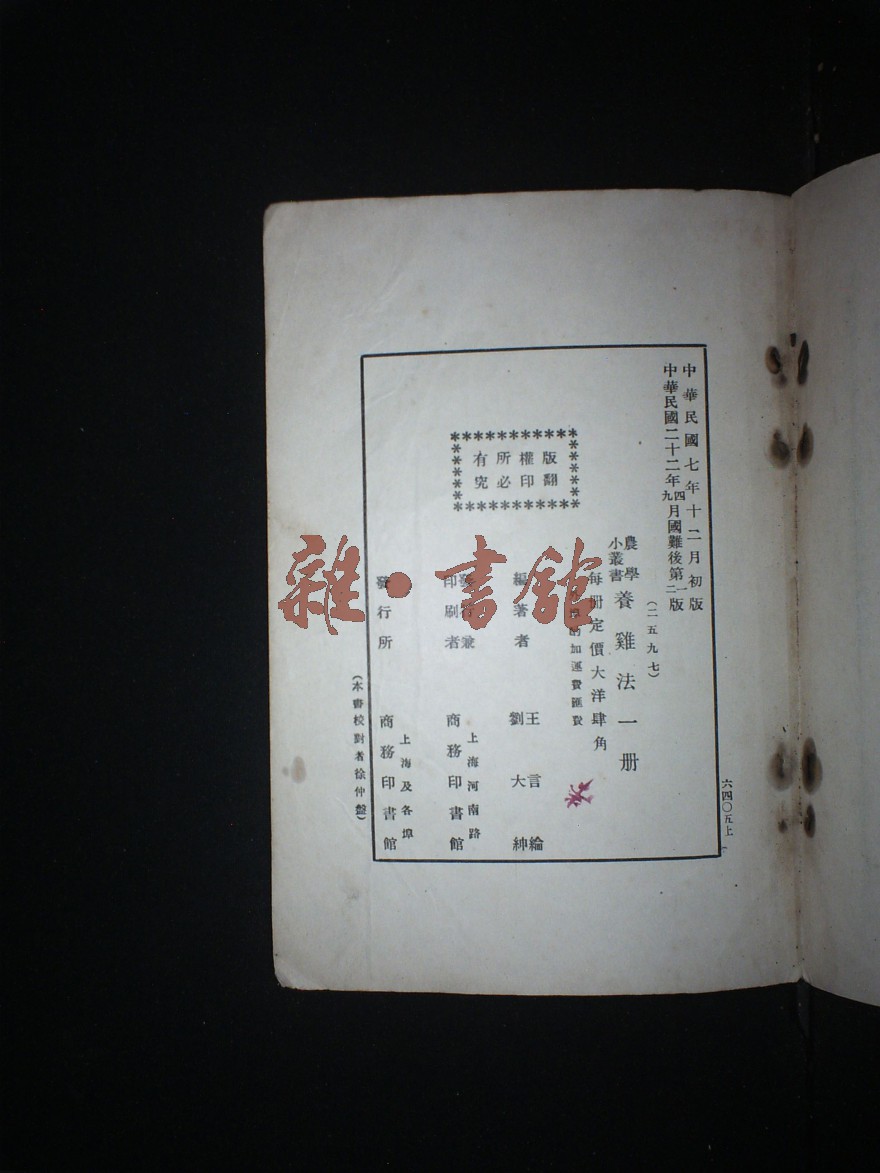 中華民國七年十二月初版
中華民國二十二年四九月國難後第一二版
(二五九七)
農學小叢書 養雞法 一册
每冊定價大洋肆角
加運費匯費
版權所有
翻印必究
編著者 王言綸 劉大紳
發行兼印刷者 上海河南路 商務印書館
發行所 上海及各埠 商務印書館
(本書校對者徐仲盤)
六四〇五上
雜·書館